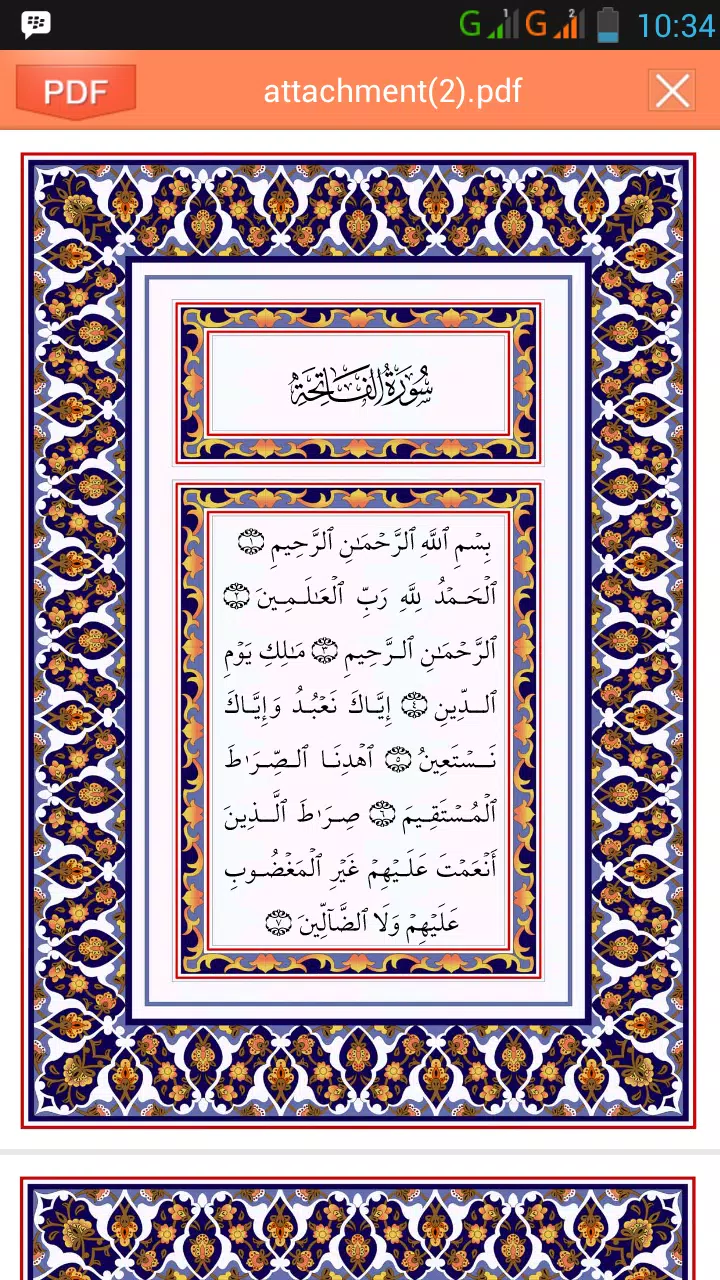 1 2
G G 10:34
PDF attachment(2).pdf
سُورَةُ الفَاتِحَةِ
بِسۡمِ ٱللَّهِ ٱلرَّحۡمَـٰنِ ٱلرَّحِیمِ ١
ٱلۡحَمۡدُ لِلَّهِ رَبِّ ٱلۡعَـٰلَمِینَ ٢
ٱلرَّحۡمَـٰنِ ٱلرَّحِیمِ ٣ مَـٰلِكِ یَوۡمِ
ٱلدِّینِ ٤ إِیَّاكَ نَعۡبُدُ وَإِیَّاكَ
نَسۡتَعِینُ ٥ ٱهۡدِنَا ٱلصِّرَ ٰ⁠طَ
ٱلۡمُسۡتَقِیمَ ٦ صِرَ ٰ⁠طَ ٱلَّذِینَ
أَنۡعَمۡتَ عَلَیۡهِمۡ غَیۡرِ ٱلۡمَغۡضُوبِ
عَلَیۡهِمۡ وَلَا ٱلضَّاۤلِّینَ ٧